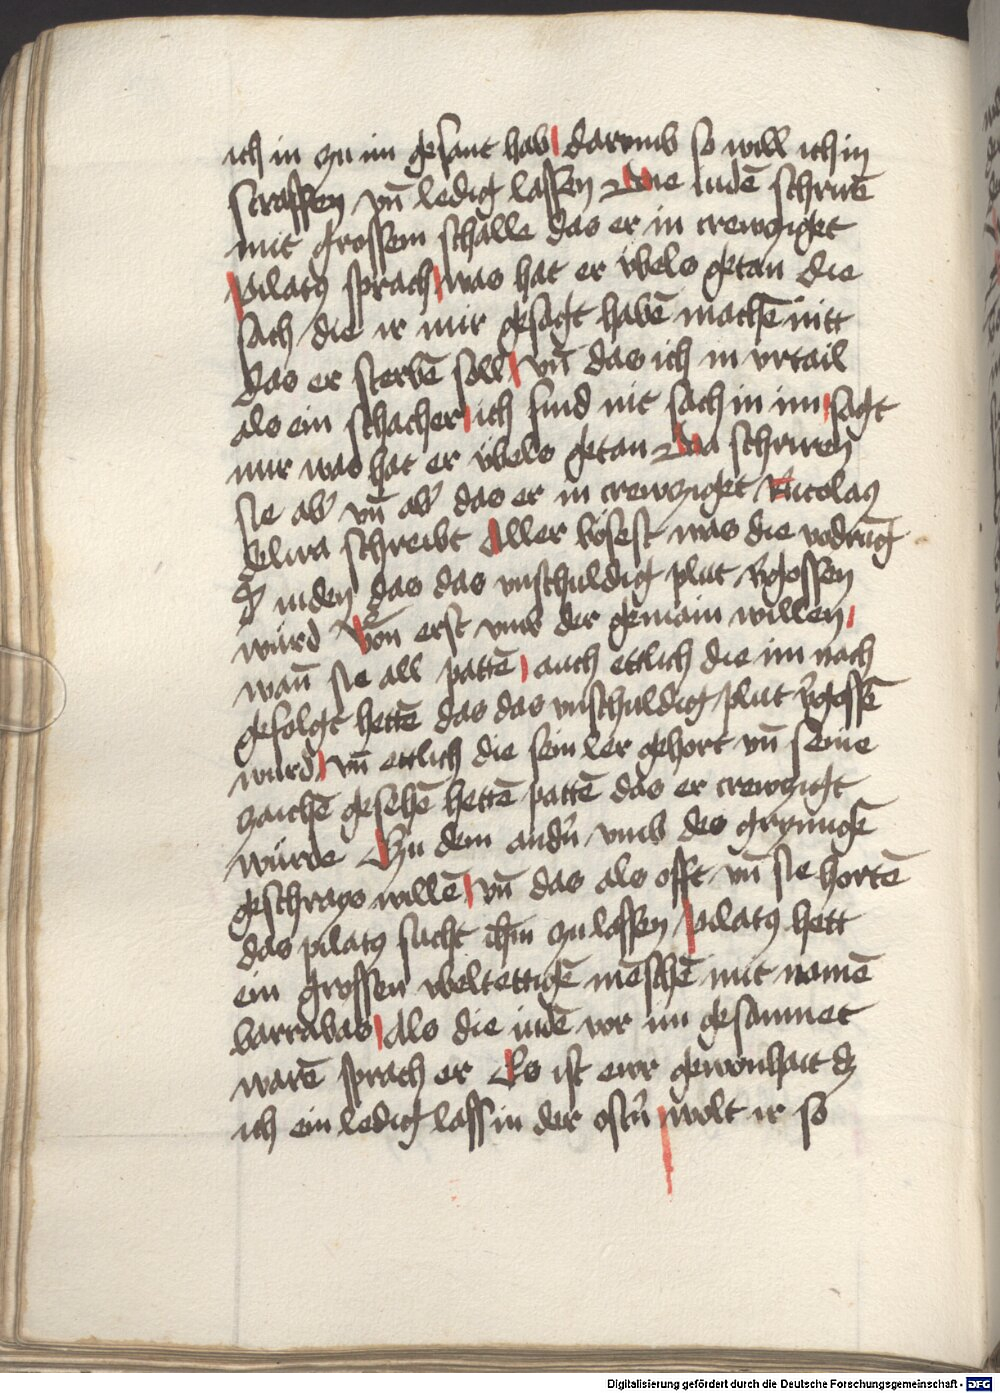 ich in zu im gesant hab darvmb so will ich in
straffen vn̄ ledig lassen Die iudē schriē
mit grossem schalle das er in crewcziget
pilatꝰ sprach was hat er vbels getan die
sach die ir mir gesagt habē machē nitt
das er sterbē soll vn̄ das ich in vrtail
als ein schacher ich find nit sach in im sagt
mir was hat er vbels getan Da schriren
sie ab̄ vn̄ ab̄ das er in crewcziget Nicolaꝰ
lira schreibt Aller bösest was die vodrūg
iuden das das vnschuldig plut v̄gossen
würd Von erst vmb der gemain willen
wan̄ sie all pattē auch ettlich die im nach
gefolgt hettē das das vnschuldig plut v̄gossē
würd vn̄ ettlich die sein ler gehort vn̄ seine
zaichē gesehē hettē pattē das er crewczigt
würde Zu dem andn̄ vmb des grymigē
geschrays willē vn̄ das als offt vn̄ sie hortē
das pilatꝰ sucht ih̄m zu lassen pilatꝰ hett
ein grossen vbeltettigē mēschē mit namē
barrabas Als die iudē vor im gesamet
warē sprach er Es ist ewr gewonhait dz
ich ein ledig lass in der ostn̄ wolt ir so
Digitalisierung gefördert durch die Deutsche Forschungsgemeinschaft - DFG